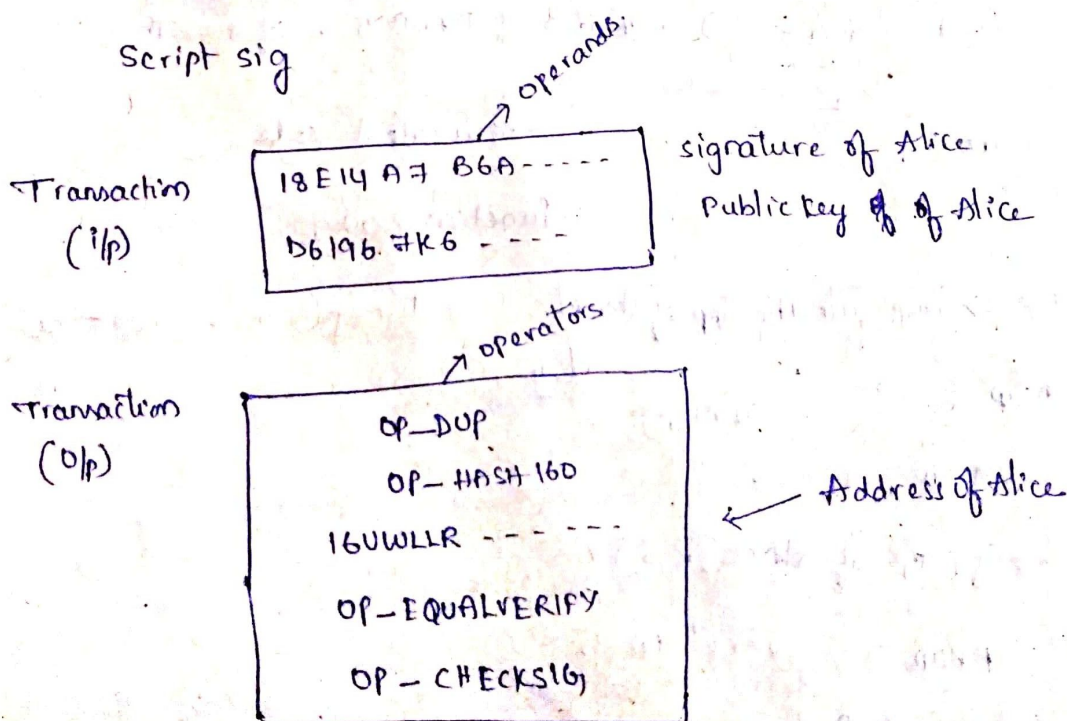 Script sig
operands.
Transaction
(i/p)
18E14 A7 B6A-----
D6196.7K6 ----
signature of Alice.
Public key of of Alice
operators
Transaction
(O/p)
OP_DUP
OP_HASH 160
16UWLLR --- ---
OP_EQUALVERIFY
OP_CHECKSIG
Address of Alice